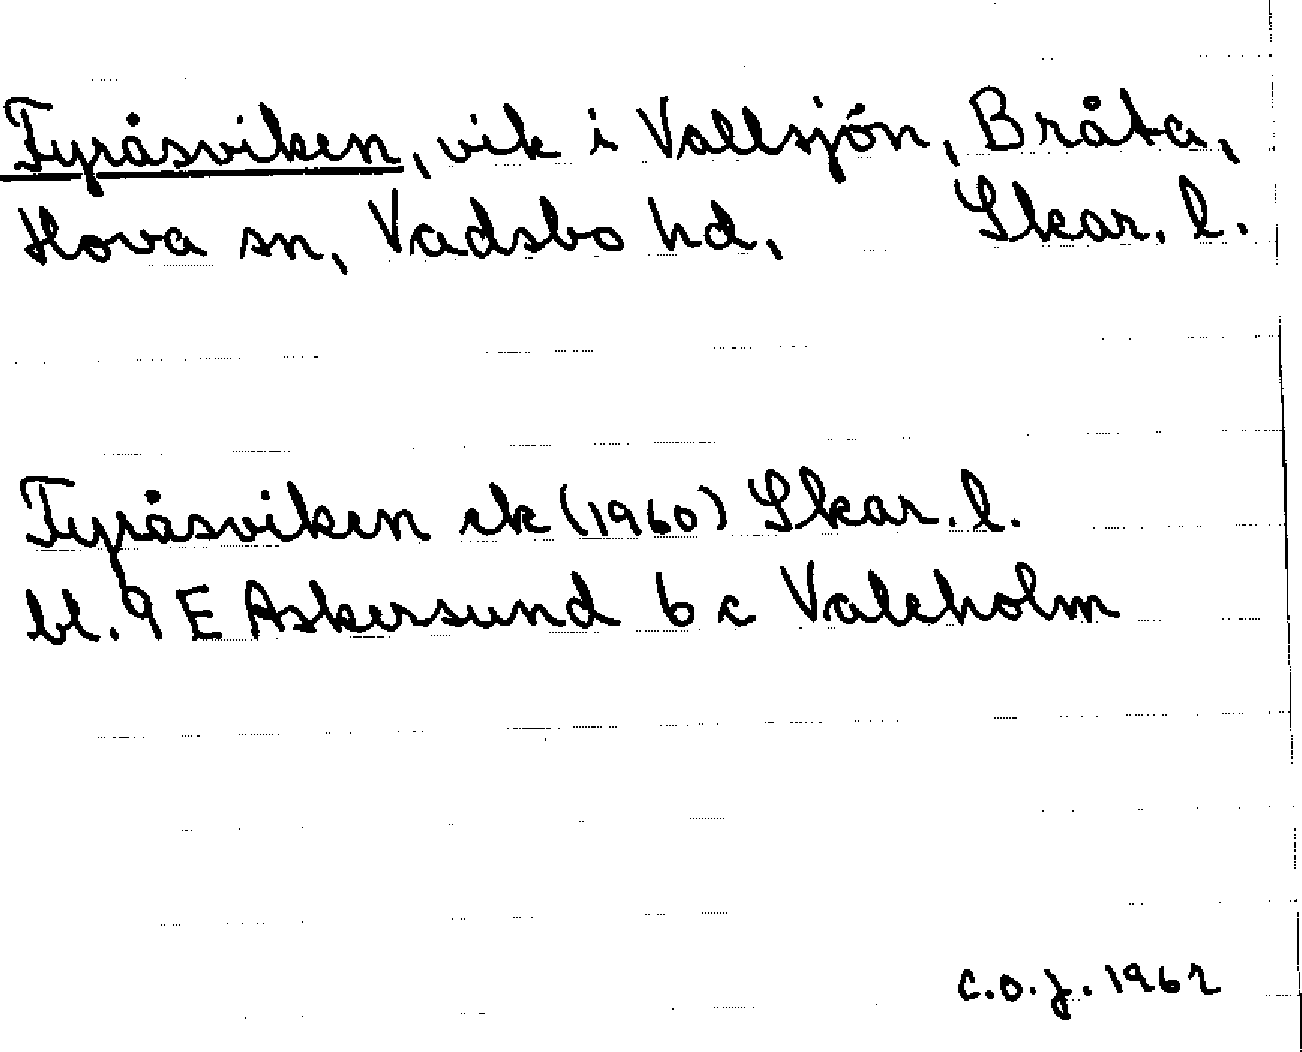 Fyråsviken, vik i Vallsjön, Bråta,
Hova sn, Vadsbo hd, Skar. l.
Fyråsviken ek (1960) Skar. l.
bl. 9 E Askersund 6 c Valeholm
C.O.J. 1962